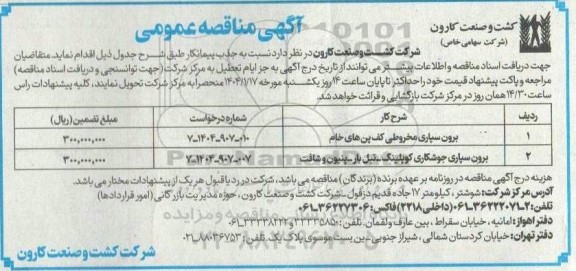 کشت و صنعت کارون
(شرکت سهامی خاص)
آگهی مناقصه عمومی
شرکت کشت و صنعت کارون در نظر دارد نسبت به جذب پیمانکار طبق شرح جدول ذیل اقدام نماید. متقاضیان
جهت دریافت اسناد مناقصه و اطلاعات بیشتر می توانند از تاریخ درج آگهی به جز ایام تعطیل به مرکز شرکت (جهت توانسنجی و دریافت اسناد مناقصه)
مراجعه و پاکت پیشنهاد قیمت خود را حداکثر تا پایان ساعت ۱۴ روز یکشنبه مورخه ۱۴۰۴/۱/۱۷ منحصراً به مرکز شرکت تحویل نمایند، کلیه پیشنهادات راس
ساعت ۱۴/۳۰ همان روز در مرکز شرکت بازگشایی و قرائت خواهد شد.
ردیف شرح کار شماره درخواست مبلغ تضمین (ریال)
۱ برون سپاری مخروطی کف پن های خام ۷-۱۴۰۴-۹۰۷-۰۱۰ ۳۰۰,۰۰۰,۰۰۰
۲ برون سپاری جوشکاری کوپلینگ، تیل بار، پینیون و شافت ۷-۱۴۰۴-۹۰۷-۰۰۷ ۳۰۰,۰۰۰,۰۰۰
هزینه درج آگهی مناقصه در روزنامه بر عهده برنده (برندگان) مناقصه می باشد، شرکت در رد یا قبول هر یک از پیشنهادات مختار می باشد.
آدرس مرکز شرکت: شوشتر، کیلومتر ۱۷ جاده قدیم دزفول - شرکت کشت و صنعت کارون، حوزه مدیریت بازرگانی (امور قراردادها)
تلفن: ۲-۳۶۲۲۲۰۷۱-۰۶۱ (داخلی ۲۲۱۸) فاکس: ۳۶۲۲۷۳۰۶-۰۶۱
دفتر اهواز: امانیه، خیابان سقراط، بین عارف و لقمان. تلفن:
دفتر تهران: خیابان کردستان شمالی، شیراز جنوبی، بن بست موسوی پلاک یک. تلفن:
شرکت کشت و صنعت کارون